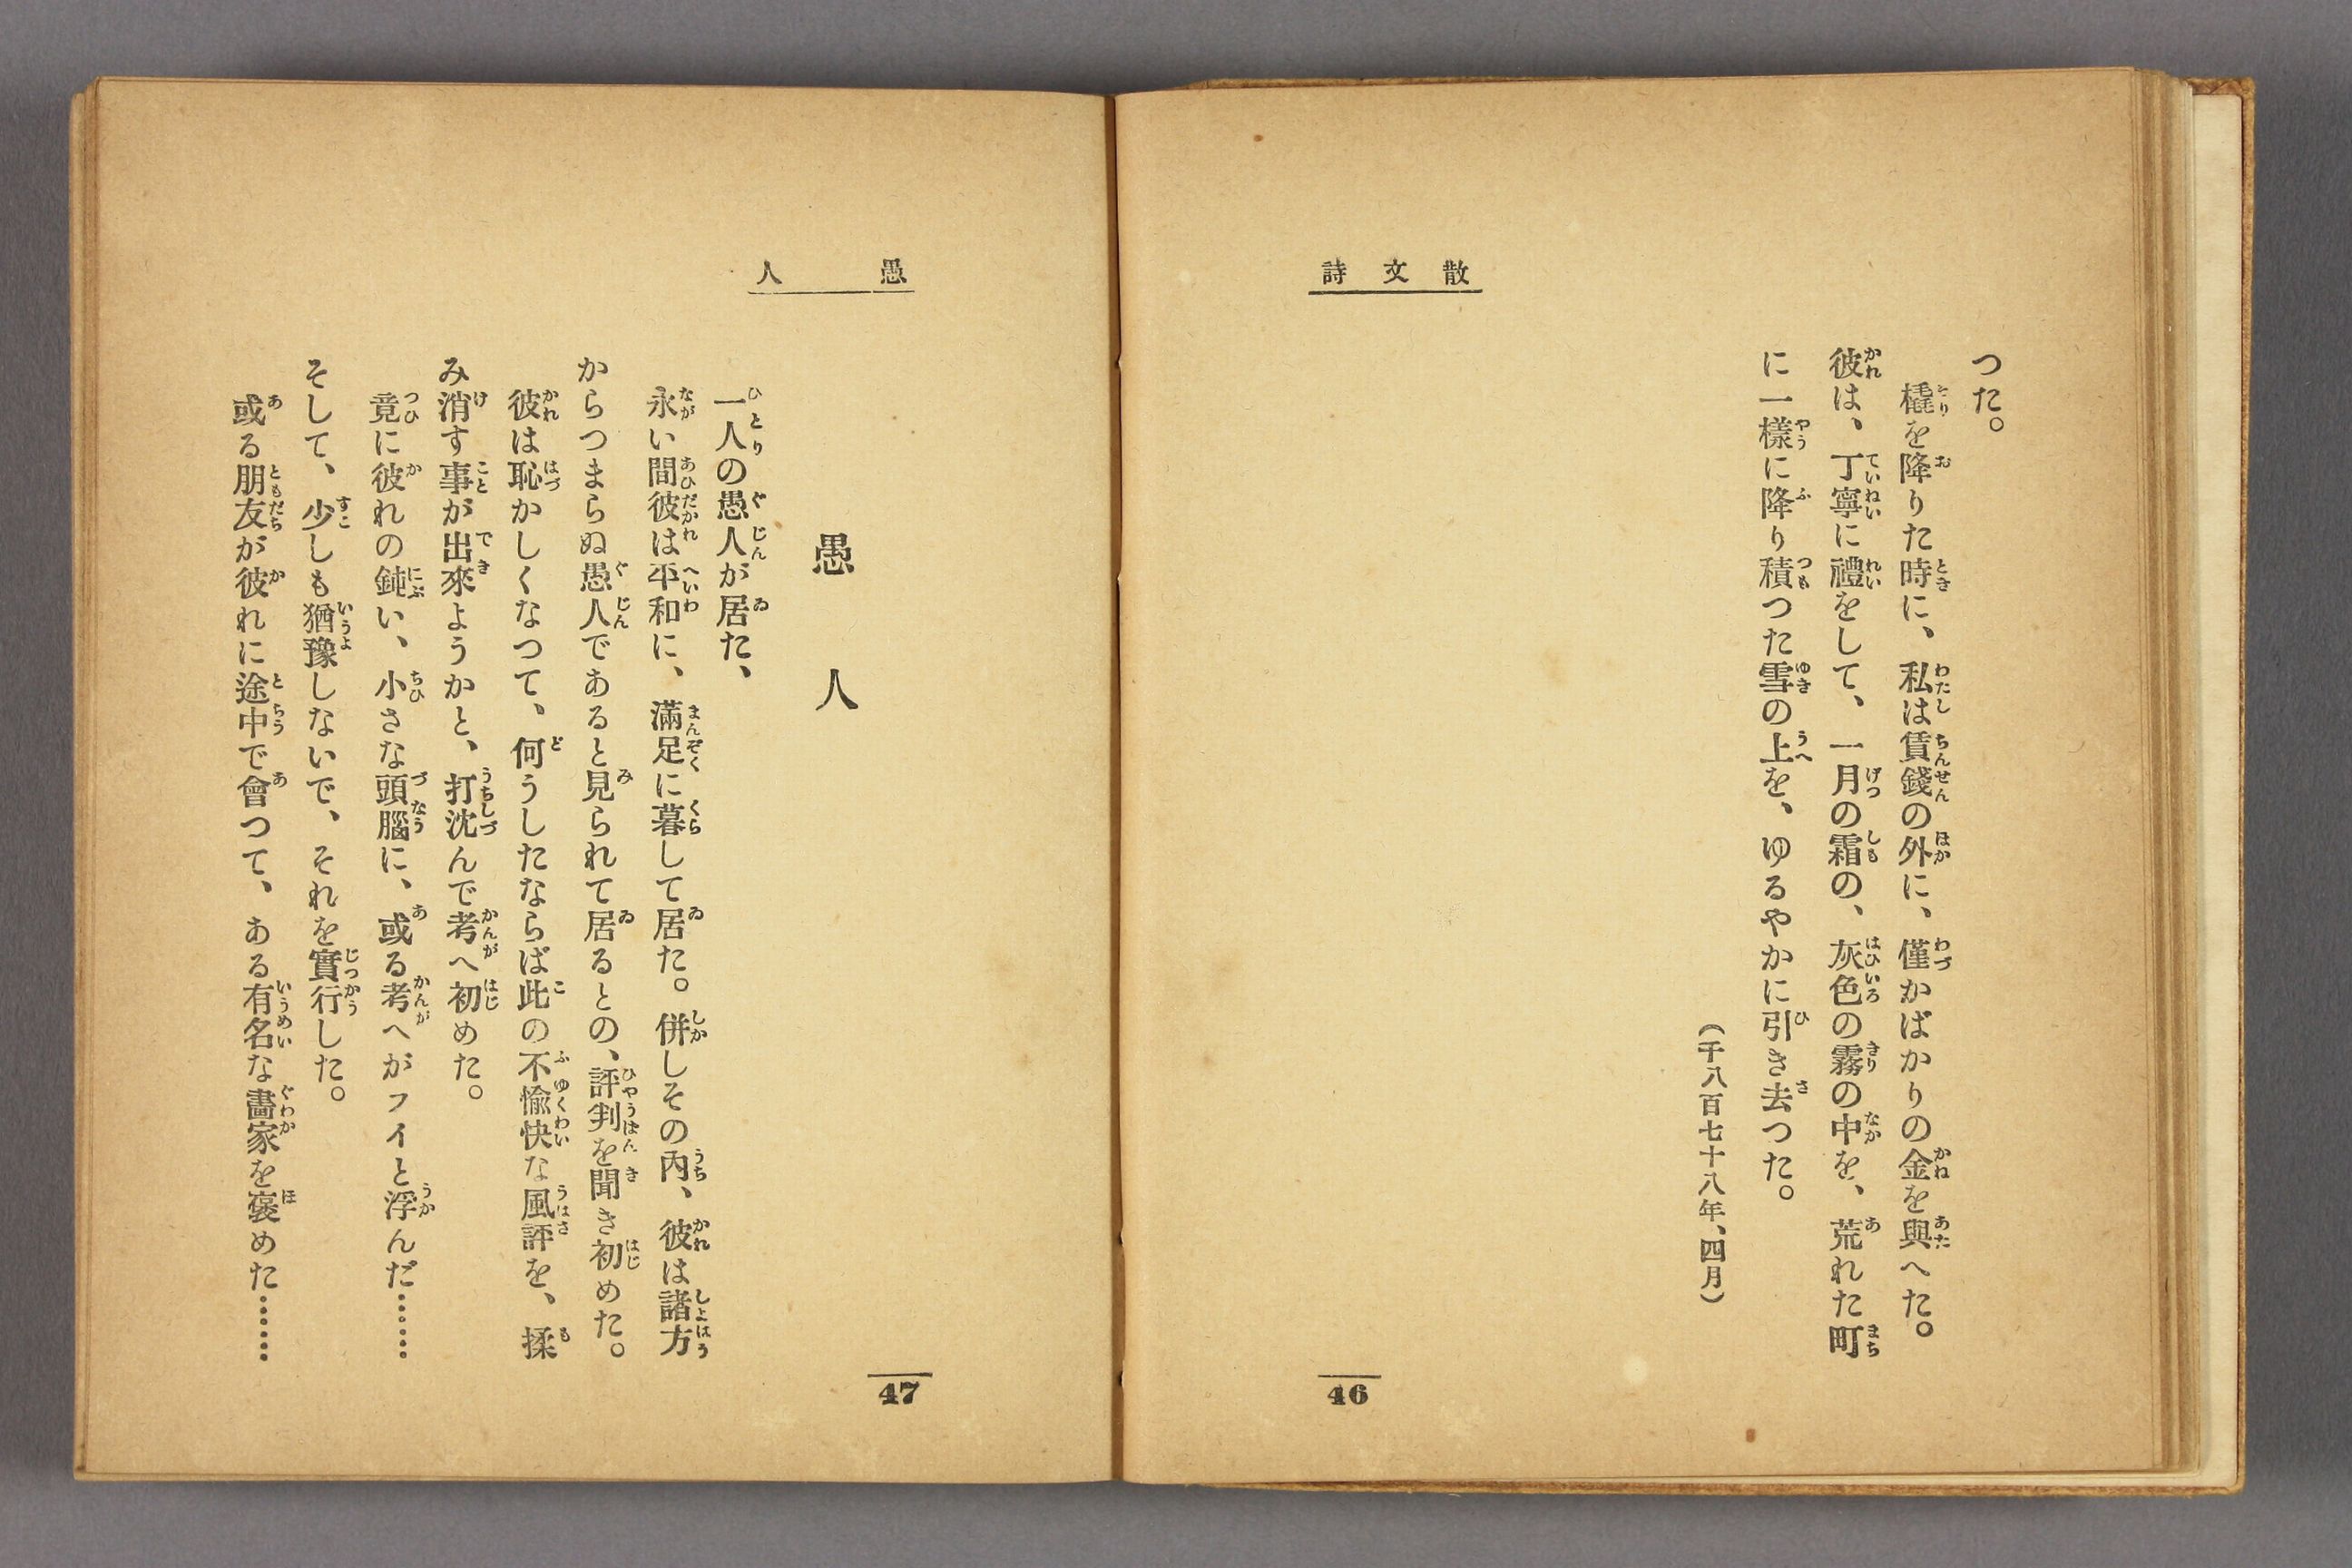 散文詩
つた。
橇を降りた時に、私は賃錢の外に、僅かばかりの金を與へた。
彼は、丁寧に禮をして、一月の霜の、灰色の霧の中を、荒れた町
に一樣に降り積つた雪の上を、ゆるやかに引き去つた。
（千八百七十八年、四月）
46
愚人
愚人
一人の愚人が居た、
永い間彼は平和に、滿足に暮して居た。併しその內、彼は諸方
からつまらぬ愚人であると見られて居るとの、評判を聞き初めた。
彼は恥かしくなつて、何うしたならば此の不愉快な風評を、揉
み消す事が出來ようかと、打沈んで考へ初めた。
竟に彼れの鈍い、小さな頭腦に、或る考へがフイと浮んだ……
そして、少しも猶豫しないで、それを實行した。
或る朋友が彼れに途中で會つて、ある有名な畵家を褒めた……
47